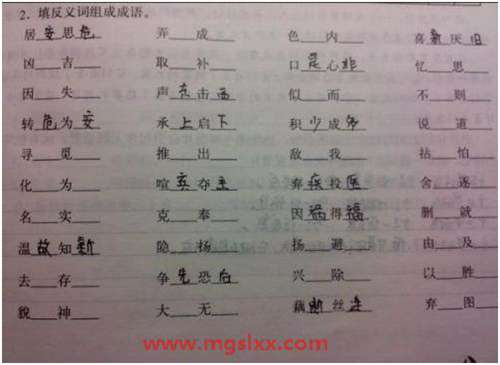 2. 填反义词组成成语。
居安思危 弄___成___ 色___内___ 喜新厌旧
凶___吉___ 取___补___ 口是心非 忆___思___
因___失___ 声东击西 似___而___ 不___则___
转危为安 承上启下 积少成多 说___道___
寻___觅___ 推___出___ 敌___我___ 拈___怕___
化___为___ 喧宾夺主 弃疾投医 舍___逐___
名___实___ 克___奉___ 因祸得福 删___就___
温故知新 隐___扬___ 扬___避___ 由___及___
去___存___ 争先恐后 兴___除___ 以___胜___
貌___神___ 大___无___ 藕断丝连 弃___图___
www.mgslxx.com